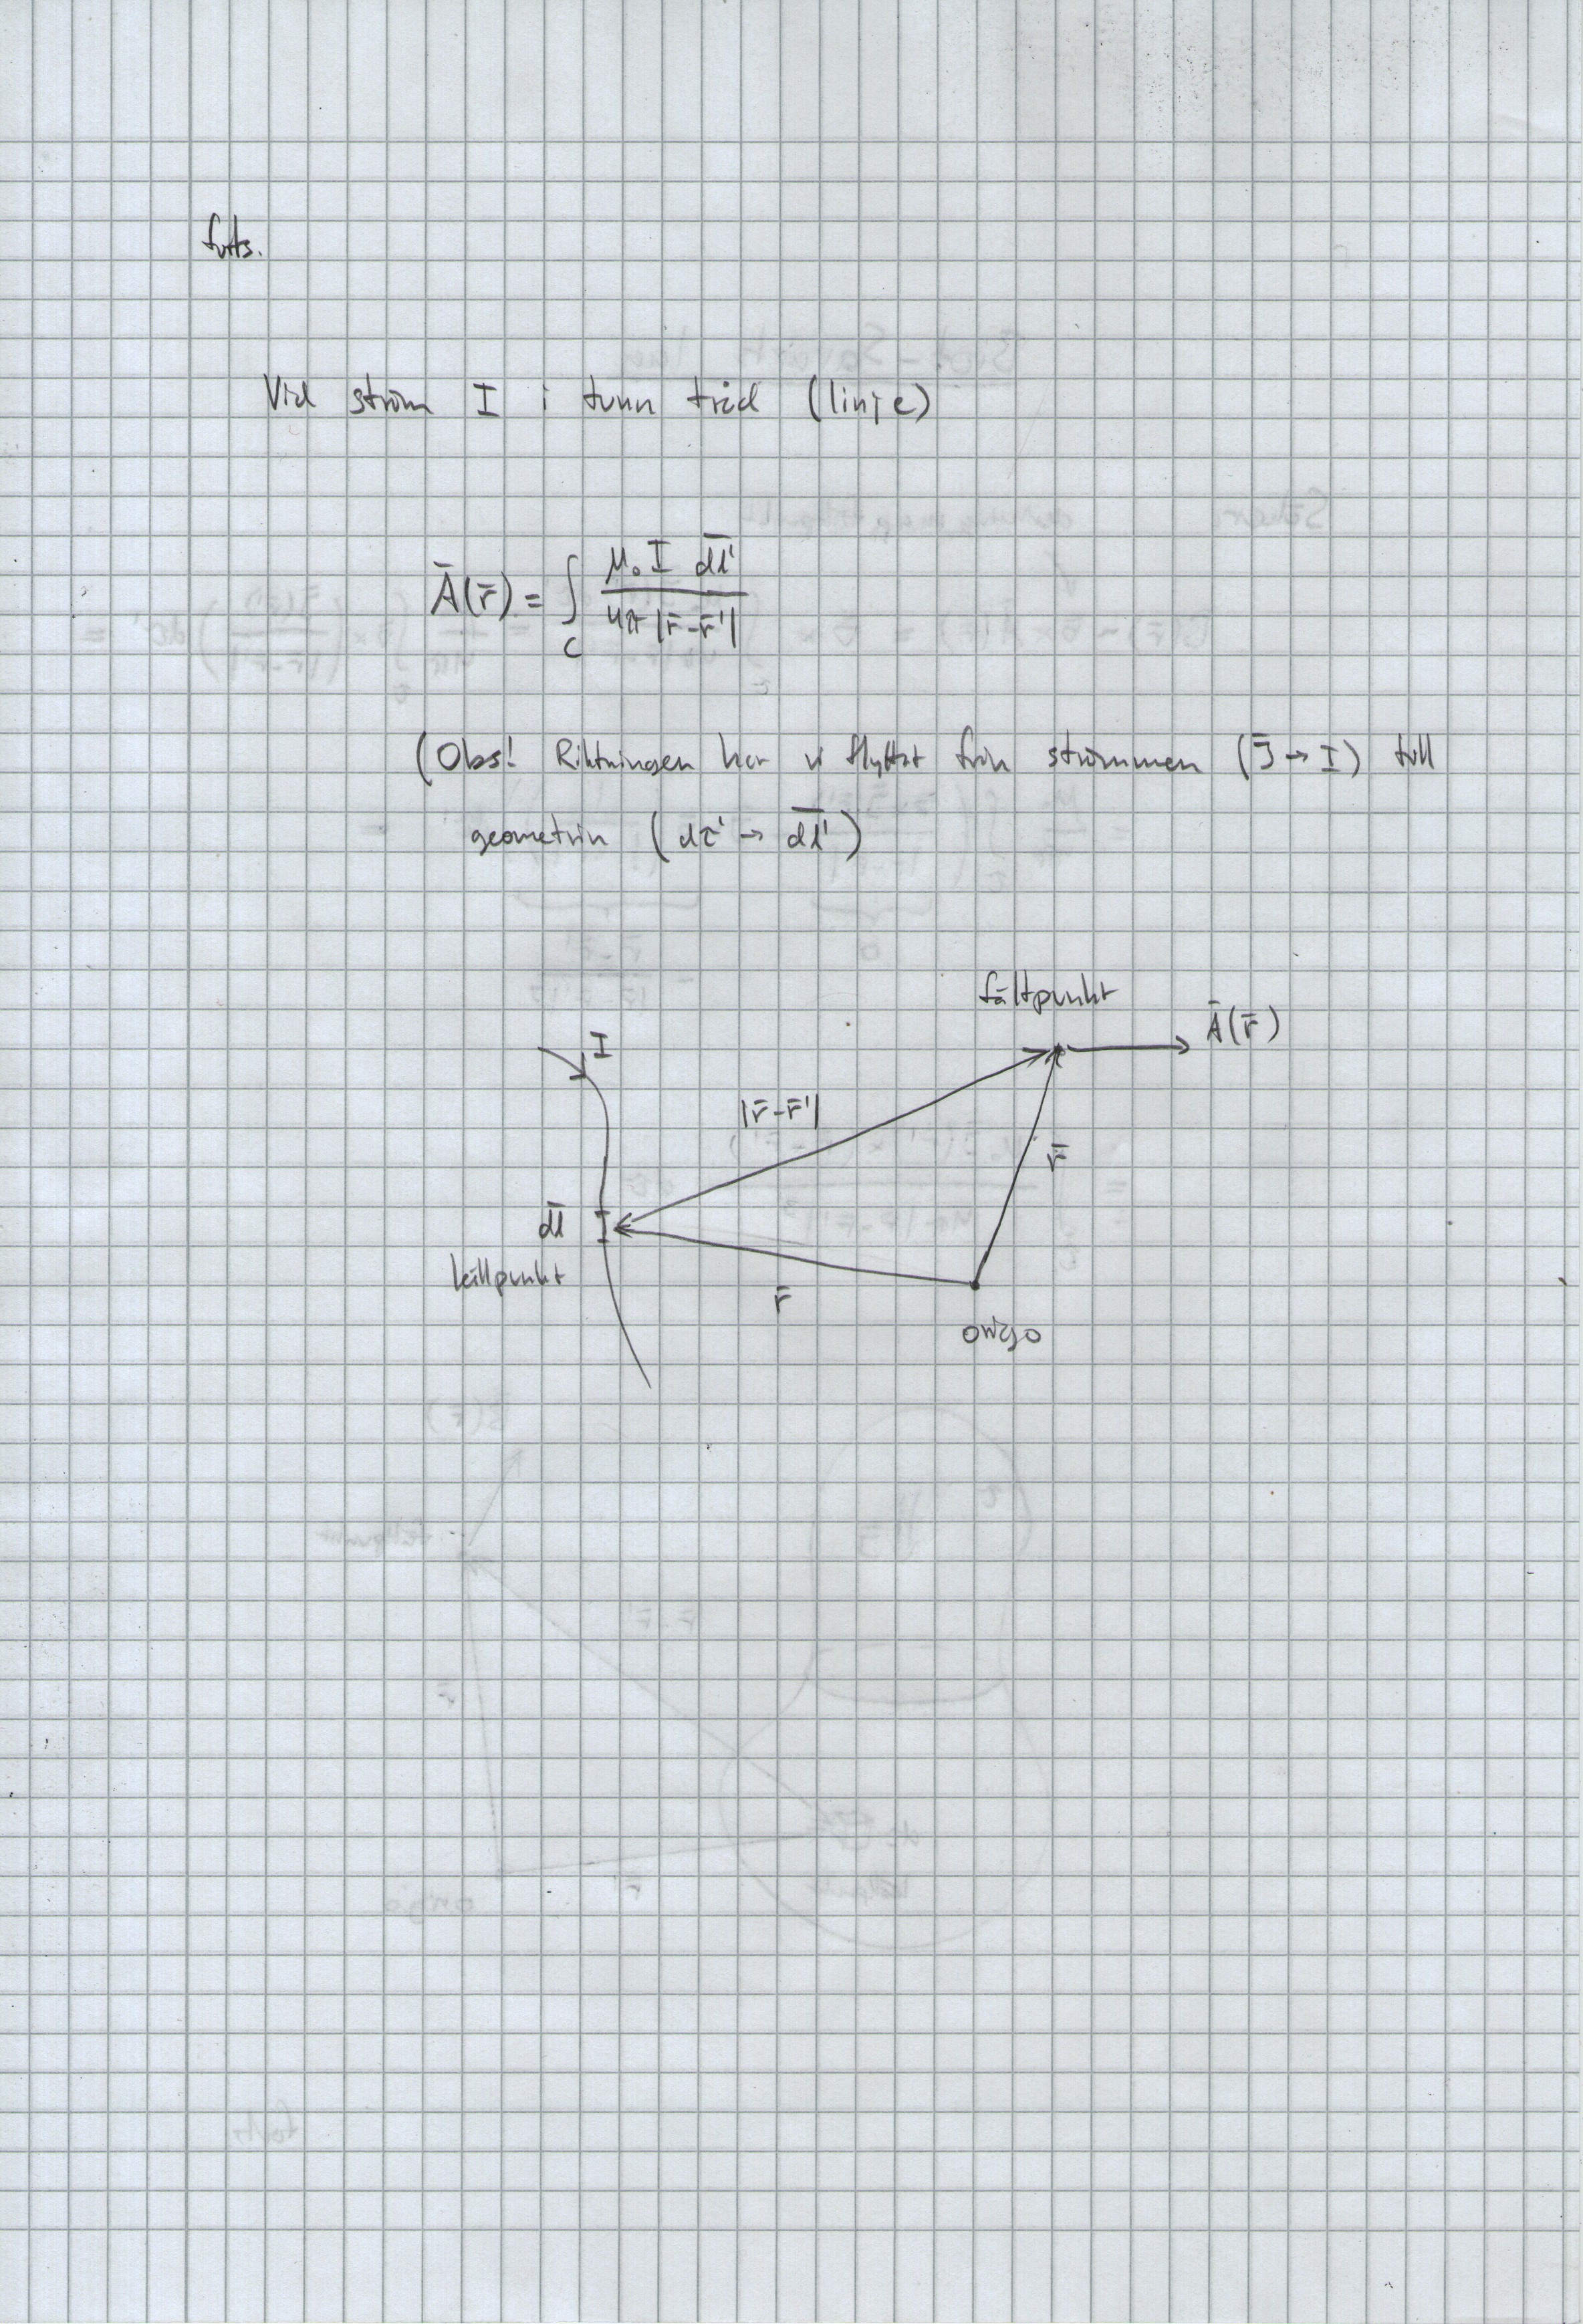 forts.
Vid ström I i tunn tråd (linje)
Ā(r̄) = ∫_C μ₀ I d̄l' / 4π |r̄-r̄'|
(Obs! Riktningen har vi flyttat från strömmen (J̄ → I) till
geometrin (dτ' → d̄l')
fältpunkt
Ā(r̄)
I
|r̄-r̄'|
r̄
d̄l
källpunkt
r̄
origo